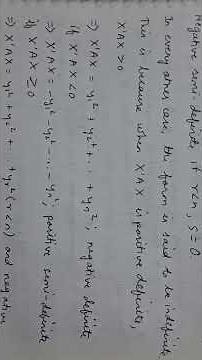 Negative semi-definite if r<n, s=0
In every other case, the form is said to be indefinite
This is because when X'AX is positive definite,
X'AX > 0
⇒ X'AX = y₁² + y₂² + ... + yₙ²; negative definite
if X'AX < 0
⇒ X'AX = -y₁² - y₂² - ... - yₙ²; positive semi-definite
if X'AX ≥ 0
⇒ X'AX = y₁² + y₂² + ... + yᵣ² (r<n) and negative